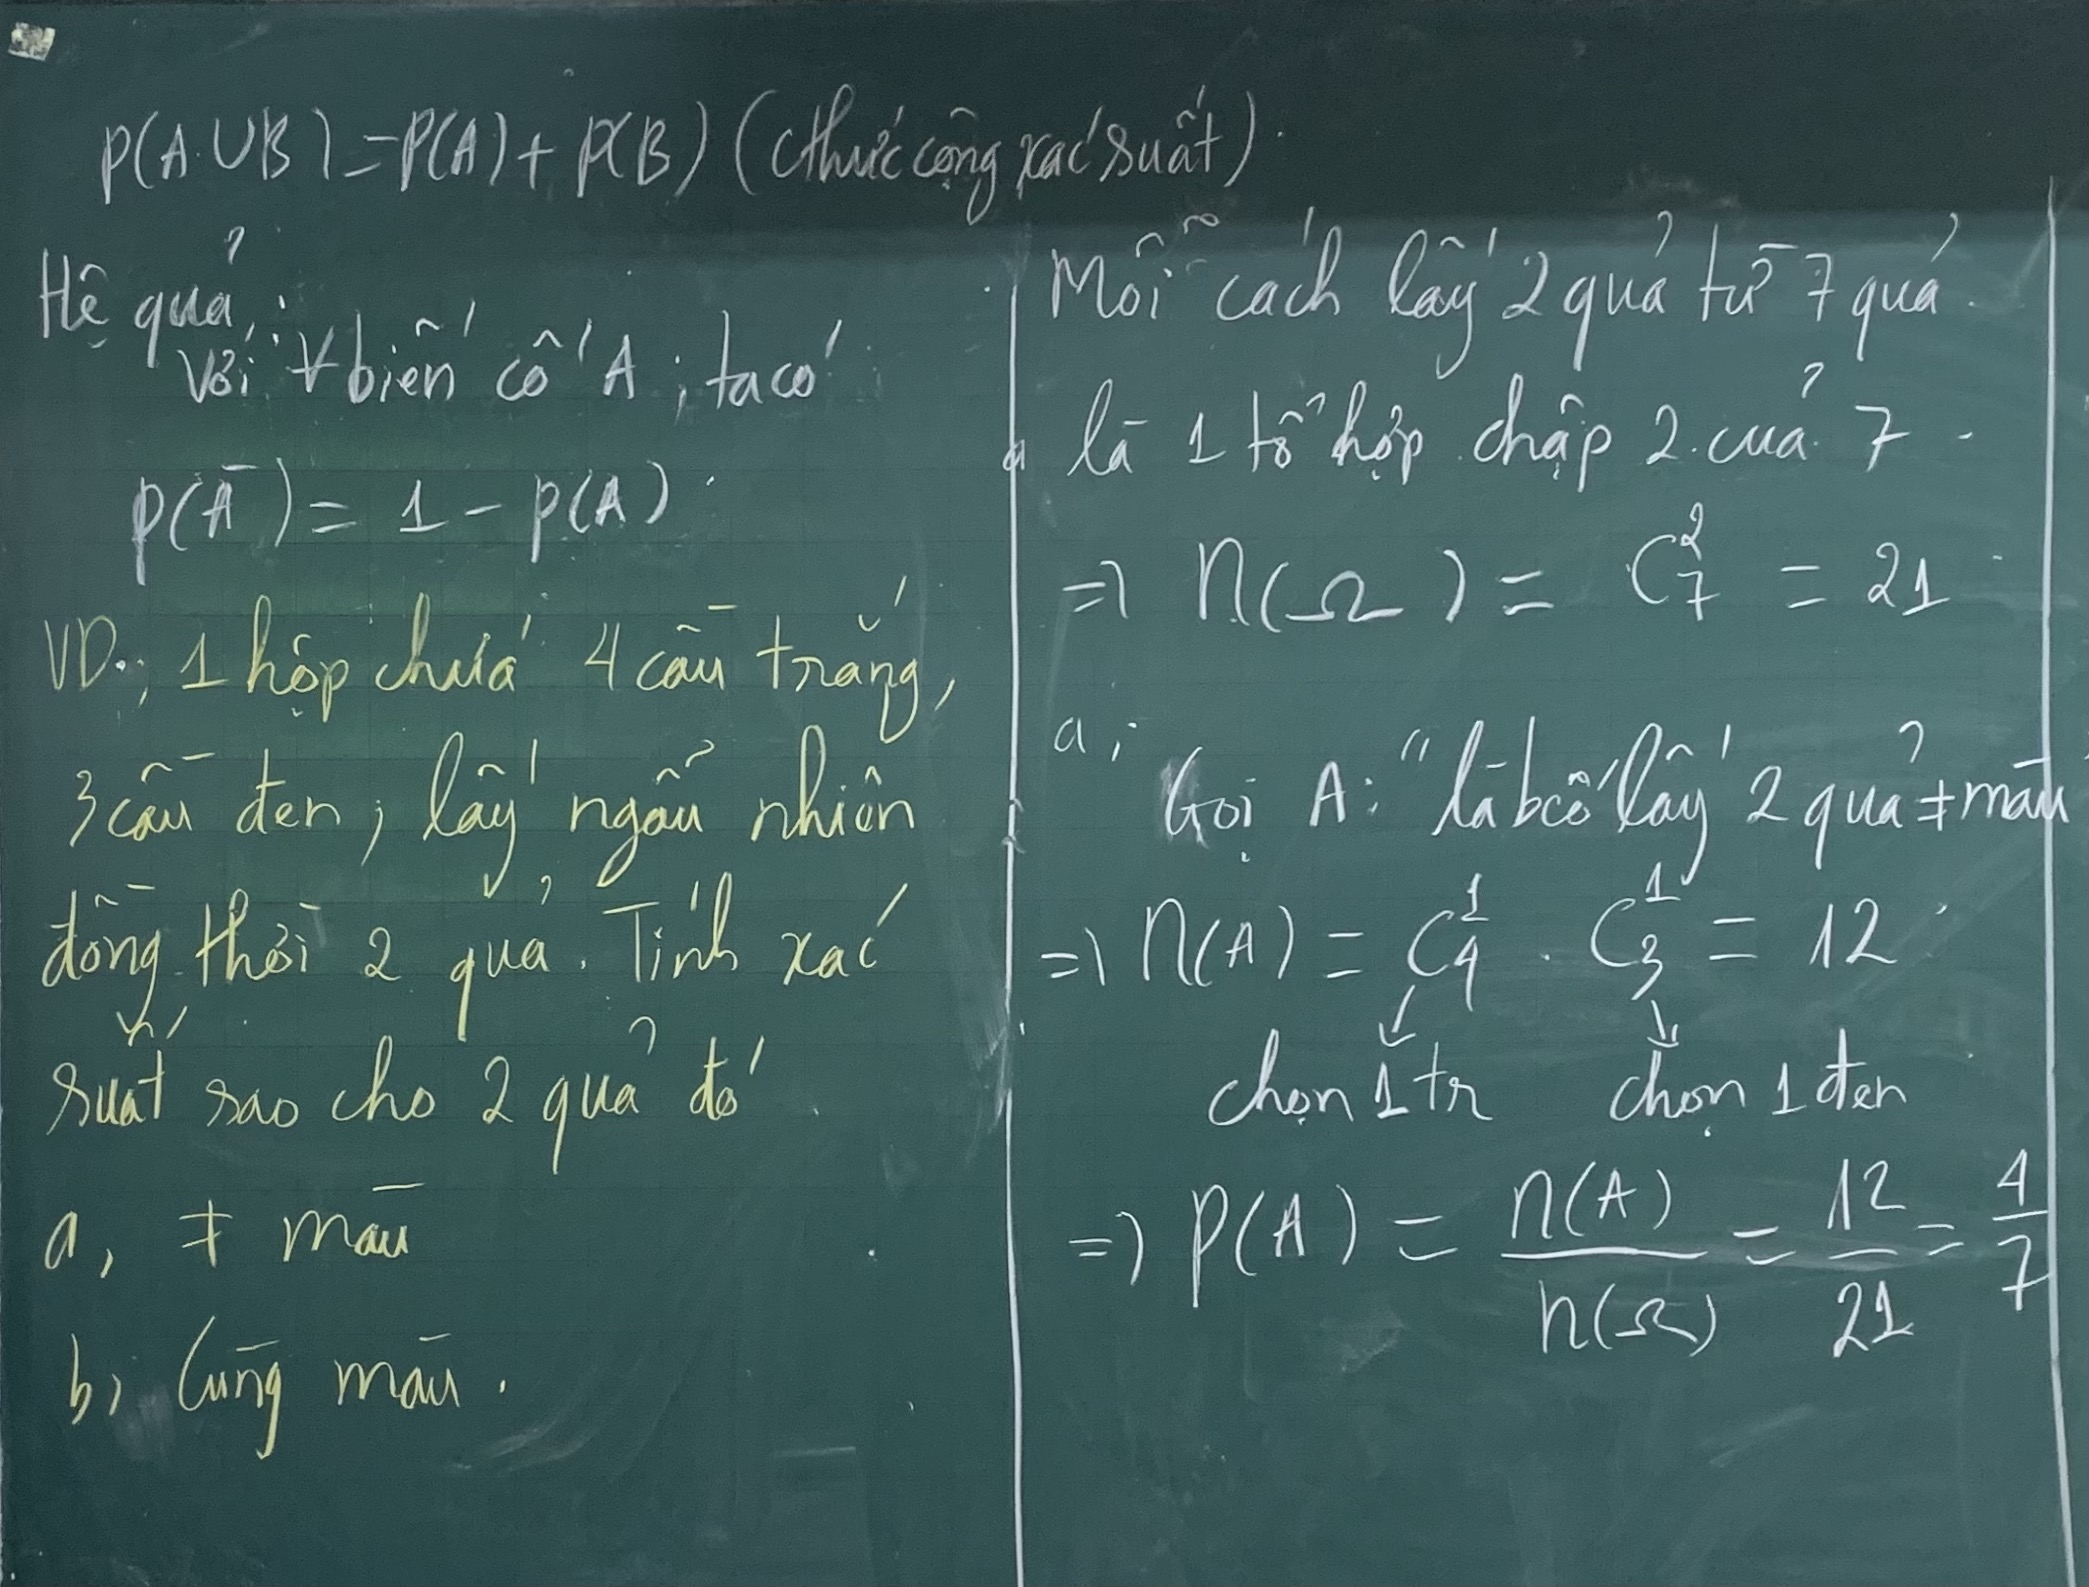 P(A∪B) = P(A) + P(B) (cthức cộng xác suất).
Hệ quả:
Với ∀ biến cố A, ta có
P(A̅) = 1 - P(A)
VD: 1 hộp chứa 4 cầu trắng,
3 cầu đen, lấy ngẫu nhiên
đồng thời 2 quả. Tính xác
suất sao cho 2 quả đó
a, ≠ màu
b, Cùng màu.
Mỗi cách lấy 2 quả từ 7 quả
là 1 tổ hợp chập 2 của 7
=> n(Ω) = C₇² = 21
a,
Gọi A: "là bcố lấy 2 quả ≠ màu
=> n(A) = C₄¹ . C₃¹ = 12
chọn 1 tr chọn 1 đen
=> P(A) = n(A)/n(Ω) = 12/21 = 4/7